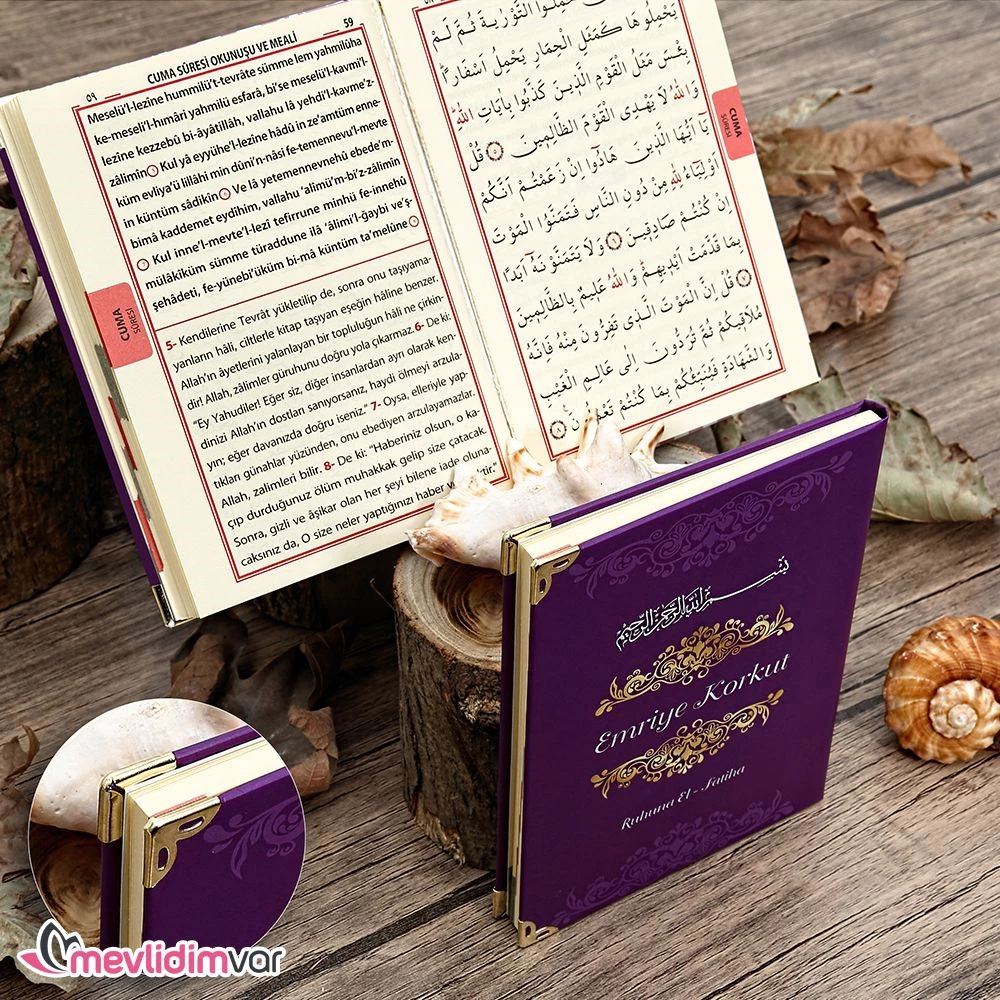 ٥٩ CUMA SÛRESİ OKUNUŞU VE MEALİ 59
Meselü'l-lezîne hummilü't-tevrâte sümme lem yahmilûha
ke-meseli'l-hımâri yahmilü esfarâ, bi'se meselü'l-kavmi'l-
lezîne kezzebû bi-âyâtillâh, vallahu lâ yehdi'l-kavme'z-
zâlimîn Kul yâ eyyühe'l-lezîne hâdû in ze'amtüm enne-
küm evliya'ü lillâhi min dûni'n-nâsi fe-temennevu'l-mevte
in küntüm sâdikîn Ve lâ yetemennevnehû ebede'm-
bimâ kaddemet eydihim, vallahu 'alimü'm-bi'z-zâlimîn
Kul inne'l-mevte'l-lezî tefirrune minhü fe-innehû
mülâkîküm sümme türaddune ilâ 'âlimi'l-ğaybi ve'ş-
şehâdeti, fe-yünebi'üküm bi-mâ küntüm ta'melûne
CUMA
SÛRESİ
5- Kendilerine Tevrât yükletilip de, sonra onu taşıyama-
yanların hâli, ciltlerle kitap taşıyan eşeğin hâline benzer.
Allah'ın âyetlerini yalanlayan bir topluluğun hâli ne çirkin-
dir! Allah, zâlimler güruhunu doğru yola çıkarmaz 6- De ki:
"Ey Yahudiler! Eğer siz, diğer insanlardan ayrı olarak ken-
dinizi Allah'ın dostları sanıyorsanız, haydi ölmeyi arzula-
yın; eğer davanızda doğru iseniz." 7- Oysa, elleriyle yap-
tıkları günahlar yüzünden, onu ebediyen arzulayamazlar.
Allah, zâlimleri bilir. 8- De ki: "Haberiniz olsun, o ka-
çıp durduğunuz ölüm muhakkak gelip size çatacak.
Sonra, gizli ve âşikar olan her şeyi bilene iade oluna-
caksınız da, O size neler yaptığınızı haber
يَحْمِلُوهَا كَمَثَلِ الْحِمَارِ يَحْمِلُ اَسْفَارًاۜ
بِئْسَ مَثَلُ الْقَوْمِ الَّذِينَ كَذَّبُوا بِاٰيَاتِ اللّٰهِۜ
وَاللّٰهُ لَا يَهْدِي الْقَوْمَ الظَّالِمِينَ ﴿٥﴾ قُلْ
يَا اَيُّهَا الَّذِينَ هَادُوا اِنْ زَعَمْتُمْ اَنَّكُمْ
اَوْلِيَاءُ لِلّٰهِ مِنْ دُونِ النَّاسِ فَتَمَنَّوُا الْمَوْتَ
اِنْ كُنْتُمْ صَادِقِينَ ﴿٦﴾ وَلَا يَتَمَنَّوْنَهُ اَبَدًا
بِمَا قَدَّمَتْ اَيْدِيهِمْۜ وَاللّٰهُ عَلِيمٌ بِالظَّالِمِينَ
﴿٧﴾ قُلْ اِنَّ الْمَوْتَ الَّذِي تَفِرُّونَ مِنْهُ فَاِنَّهُ
مُلَاقِيكُمْ ثُمَّ تُرَدُّونَ اِلٰى عَالِمِ الْغَيْبِ
وَالشَّهَادَةِ فَيُنَبِّئُكُمْ بِمَا كُنْتُمْ تَعْمَلُونَ ﴿٨﴾
CUMA
SÛRESİ
بسم الله الرحمن الرحيم
Emriye Korkut
Ruhuna El - Fatiha
mevlidimvar